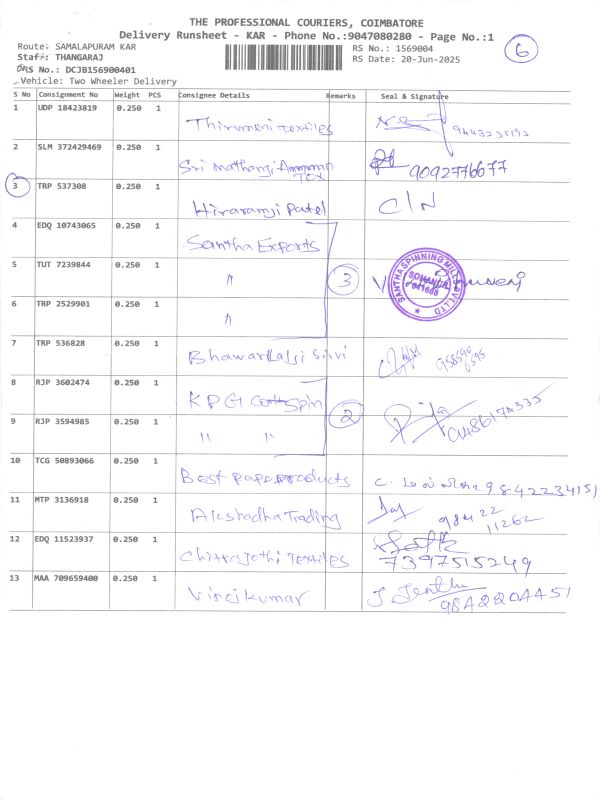 THE PROFESSIONAL COURIERS, COIMBATORE
Delivery Runsheet - KAR - Phone No.:9047080280 - Page No.:1
6
Route: SAMALAPURAM KAR
RS No.: 1569004
Staff: THANGARAJ
RS Date: 20-Jun-2025
DRS No.: DCJB156900401
Vehicle: Two Wheeler Delivery
S No Consignment No Weight PCS Consignee Details Remarks Seal & Signature
1 UDP 18423819 0.250 1 Thirumeni Textiles
2 SLM 372429469 0.250 1 Sri Mathangi Amman Tex 9092776677
3 TRP 537308 0.250 1 Hiraramji Patel C/N
4 EDQ 10743065 0.250 1 Santha Exports
5 TUT 7239844 0.250 1 " 3 SANTHA SPINNING MILLS PVT LTD SOMANUR 641668
6 TRP 2529901 0.250 1 "
7 TRP 536828 0.250 1
8 RJP 3602474 0.250 1 KPG Cotspin
9 RJP 3594985 0.250 1 " " 2
10 TCG 50893066 0.250 1 Best paper products 9842234151
11 MTP 3136918 0.250 1 Akshadha Trading 98422 11262
12 EDQ 11523937 0.250 1 Chitrajothi Textiles 7397515249
13 MAA 709659400 0.250 1 Virajkumar 9842204451